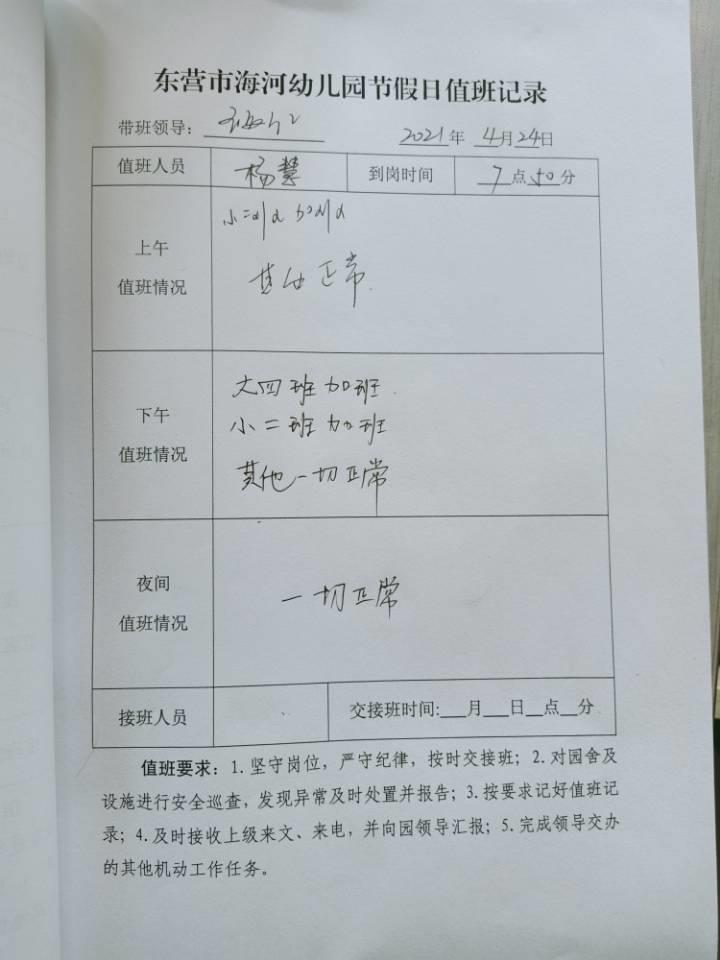 东营市海河幼儿园节假日值班记录
带班领导: 2021年 4月24日
值班人员 杨慧 到岗时间 7点50分
上午
值班情况
小二 加
其他正常.
下午
值班情况
大四班加班.
小二班加班
其他一切正常
夜间
值班情况
一切正常
接班人员 交接班时间:__月__日__点__分
值班要求：1. 坚守岗位，严守纪律，按时交接班；2. 对园舍及
设施进行安全巡查，发现异常及时处置并报告；3. 按要求记好值班记
录；4. 及时接收上级来文、来电，并向园领导汇报；5. 完成领导交办
的其他机动工作任务。